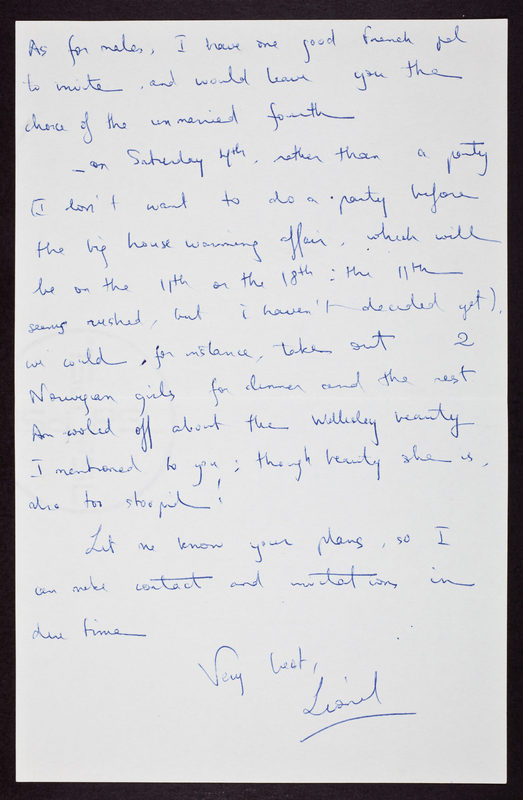 As for males, I have one good French pal
to invite, and would leave you the
choice of the unmarried fourth
– on Saturday 4th, rather than a party
(I don't want to do a party before
the big house warming affair, which will
be on the 11th or the 18th : the 11th
seems rushed, but i haven't decided yet),
we could, for instance, take out 2
Norwegian girls for dinner and the rest
Am cooled off about the Wellesley beauty
I mentioned to you ; though beauty she is,
also too stoopid !
Let me know your plans, so I
can make contact and invitations in
due time
Very best,
Lionel